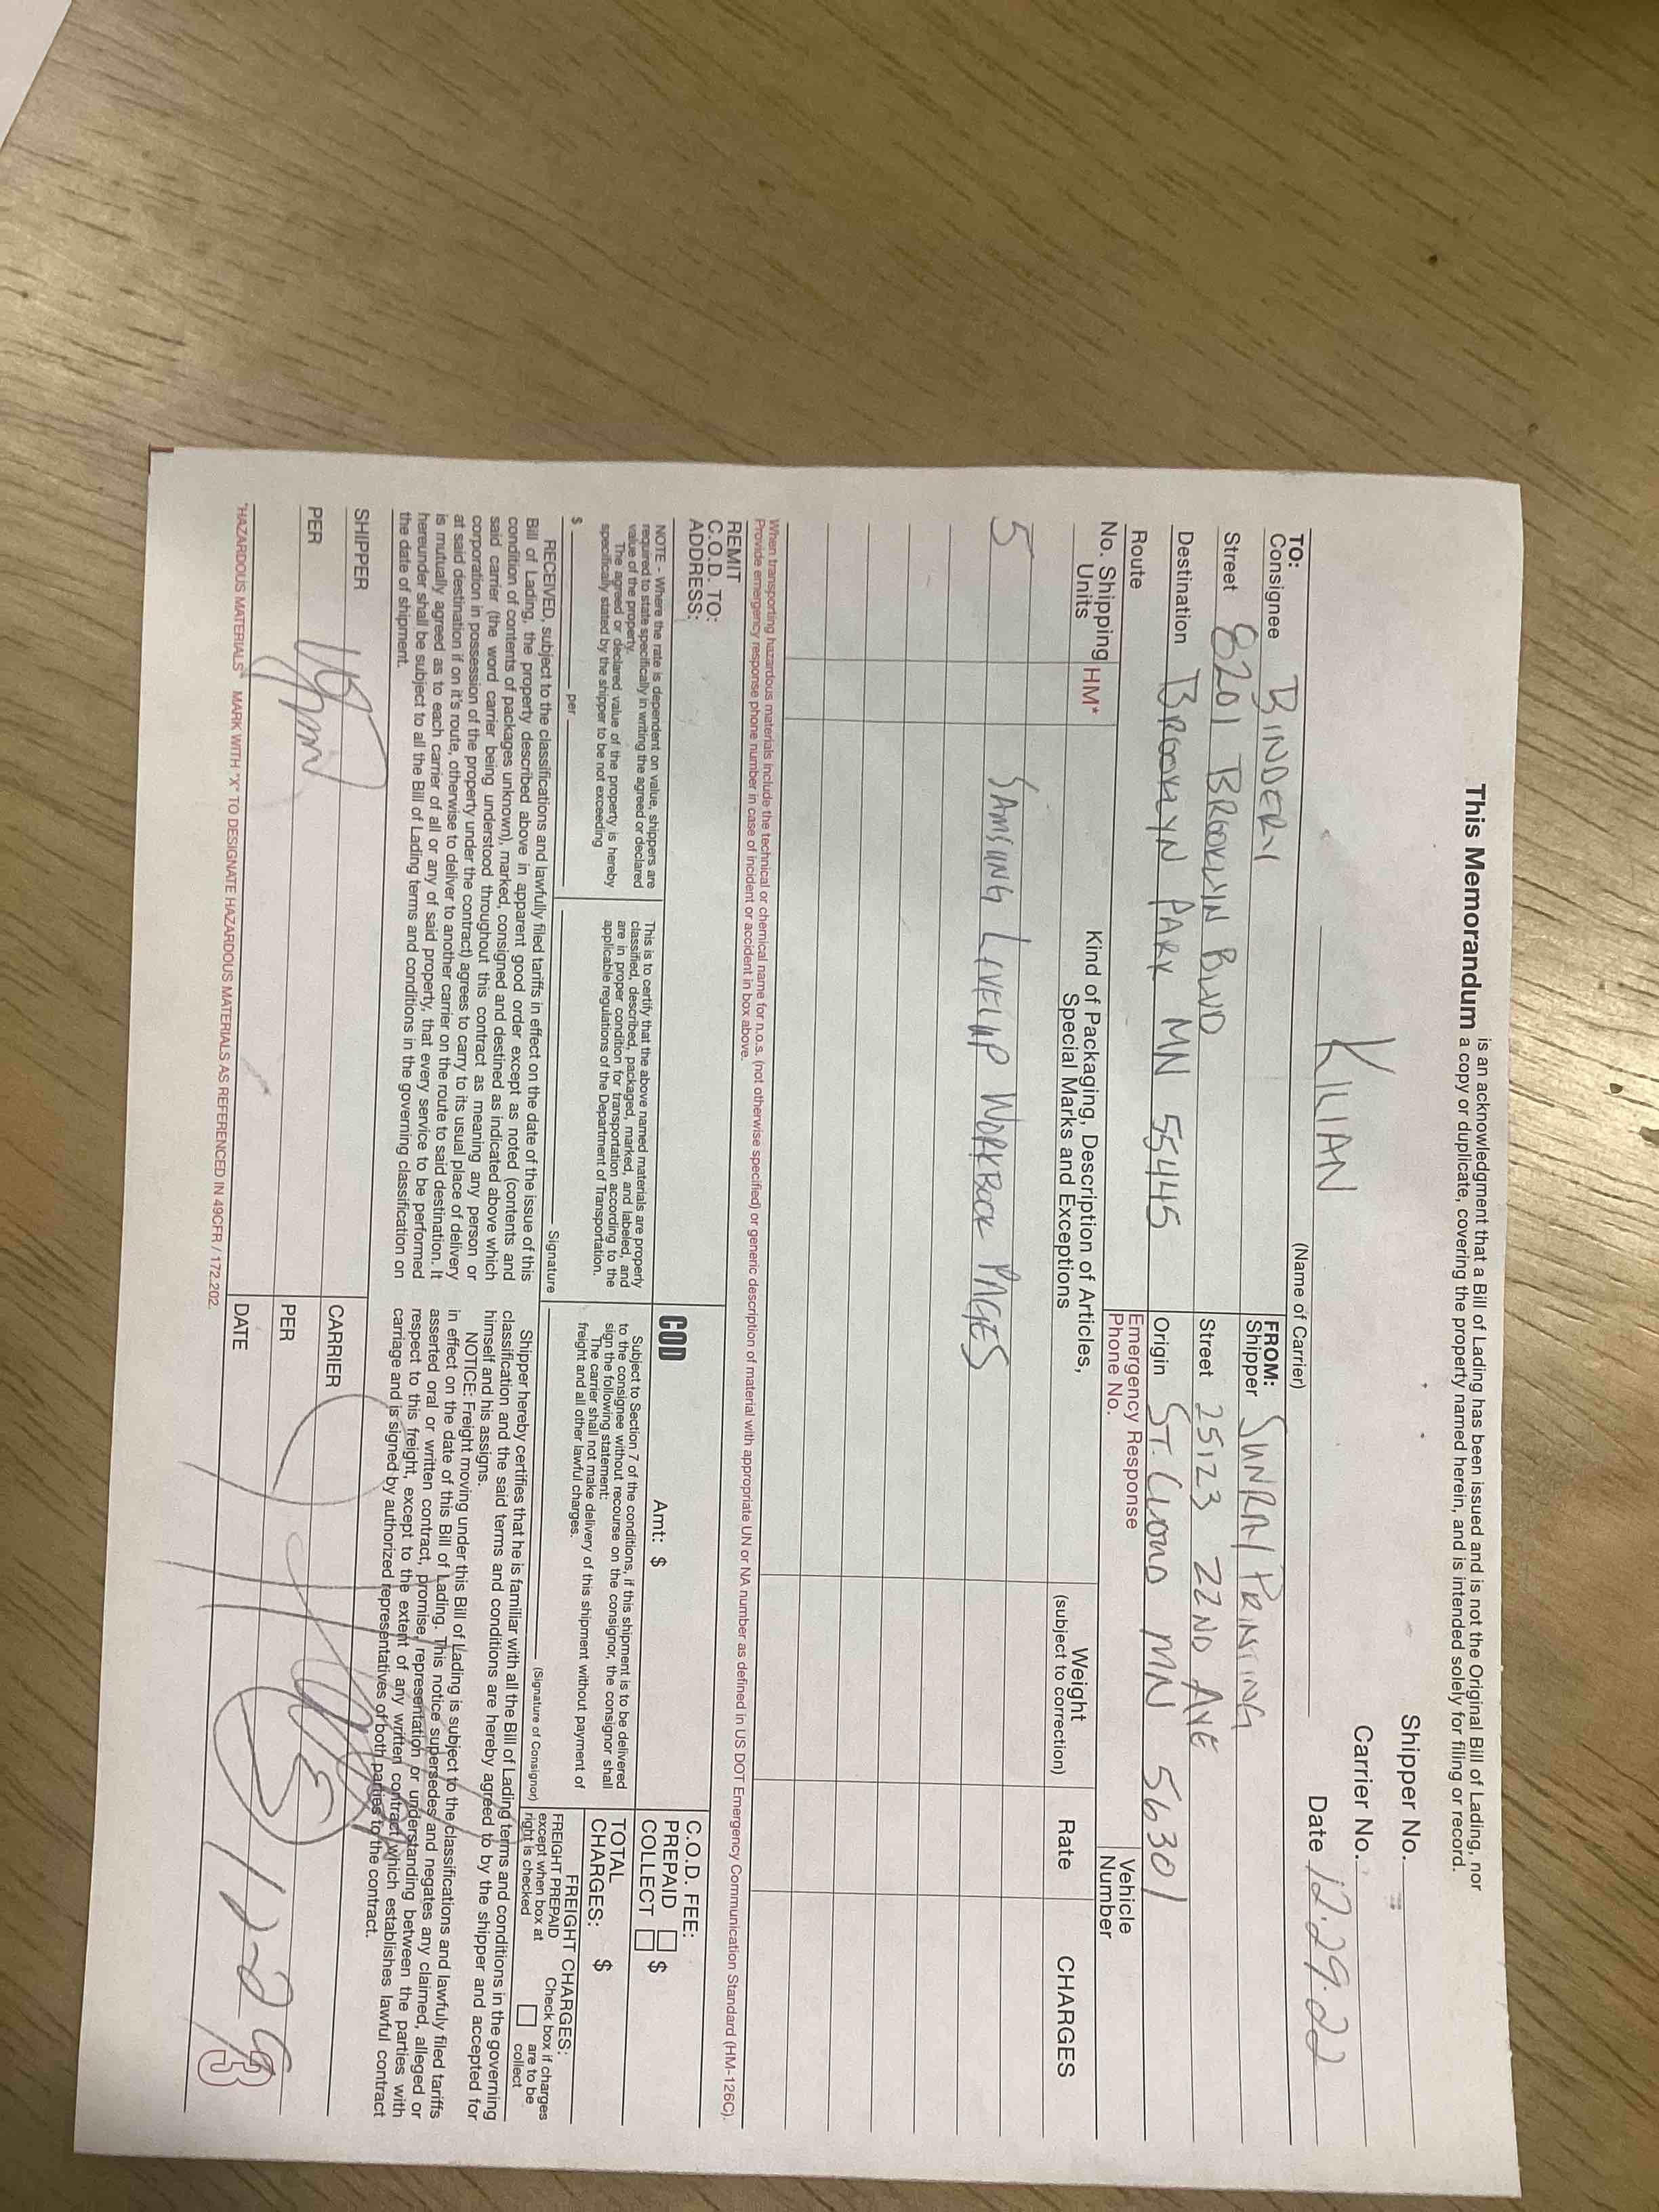 This Memorandum is an acknowledgment that a Bill of Lading has been issued and is not the Original Bill of Lading, nor
a copy or duplicate, covering the property named herein, and is intended solely for filing or record.
Shipper No.
Carrier No.
KILIAN
Date 12.29.22
(Name of Carrier)
TO:
Consignee BINDERY
FROM:
Shipper SUNRAY PRINTING
Street 8201 BROOKLYN BLVD
Street 25123 22ND AVE
Destination BROOKLYN PARK MN 55445
Origin ST. CLOUD MN 56301
Route
Emergency Response
Phone No.
Vehicle
Number
No. Shipping
Units
HM*
Kind of Packaging, Description of Articles,
Special Marks and Exceptions
Weight
(subject to correction)
Rate
CHARGES
5 SAMSUNG LEVELUP WORKBOOK PAGES
When transporting hazardous materials include the technical or chemical name for n.o.s. (not otherwise specified) or generic description of material with appropriate UN or NA number as defined in US DOT Emergency Communication Standard (HM-126C).
Provide emergency response phone number in case of incident or accident in box above.
REMIT
C.O.D. TO:
ADDRESS:
COD
Amt: $
C.O.D. FEE:
PREPAID
COLLECT
$
NOTE - Where the rate is dependent on value, shippers are
required to state specifically in writing the agreed or declared
value of the property.
The agreed or declared value of the property is hereby
specifically stated by the shipper to be not exceeding
$ per
This is to certify that the above named materials are properly
classified, described, packaged, marked, and labeled, and
are in proper condition for transportation according to the
applicable regulations of the Department of Transportation.
Signature
Subject to Section 7 of the conditions, if this shipment is to be delivered
to the consignee without recourse on the consignor, the consignor shall
sign the following statement:
The carrier shall not make delivery of this shipment without payment of
freight and all other lawful charges.
(Signature of Consignor)
TOTAL
CHARGES: $
FREIGHT CHARGES:
FREIGHT PREPAID
except when box at
right is checked
Check box if charges
are to be
collect
RECEIVED, subject to the classifications and lawfully filed tariffs in effect on the date of the issue of this
Bill of Lading, the property described above in apparent good order except as noted (contents and
condition of contents of packages unknown), marked, consigned and destined as indicated above which
said carrier (the word carrier being understood throughout this contract as meaning any person or
corporation in possession of the property under the contract) agrees to carry to its usual place of delivery
at said destination if on it's route, otherwise to deliver to another carrier on the route to said destination. It
is mutually agreed as to each carrier of all or any of said property, that every service to be performed
hereunder shall be subject to all the Bill of Lading terms and conditions in the governing classification on
the date of shipment.
Shipper hereby certifies that he is familiar with all the Bill of Lading terms and conditions in the governing
classification and the said terms and conditions are hereby agreed to by the shipper and accepted for
himself and his assigns.
NOTICE: Freight moving under this Bill of Lading is subject to the classifications and lawfuly filed tariffs
in effect on the date of this Bill of Lading. This notice supersedes and negates any claimed, alleged or
asserted oral or written contract, promise, representation or understanding between the parties with
respect to this freight, except to the extent of any written contract which establishes lawful contract
carriage and is signed by authorized representatives of both parties to the contract.
SHIPPER
CARRIER
PER
PER
DATE 12-29
"HAZARDOUS MATERIALS" MARK WITH "X" TO DESIGNATE HAZARDOUS MATERIALS AS REFERENCED IN 49CFR / 172.202.
3